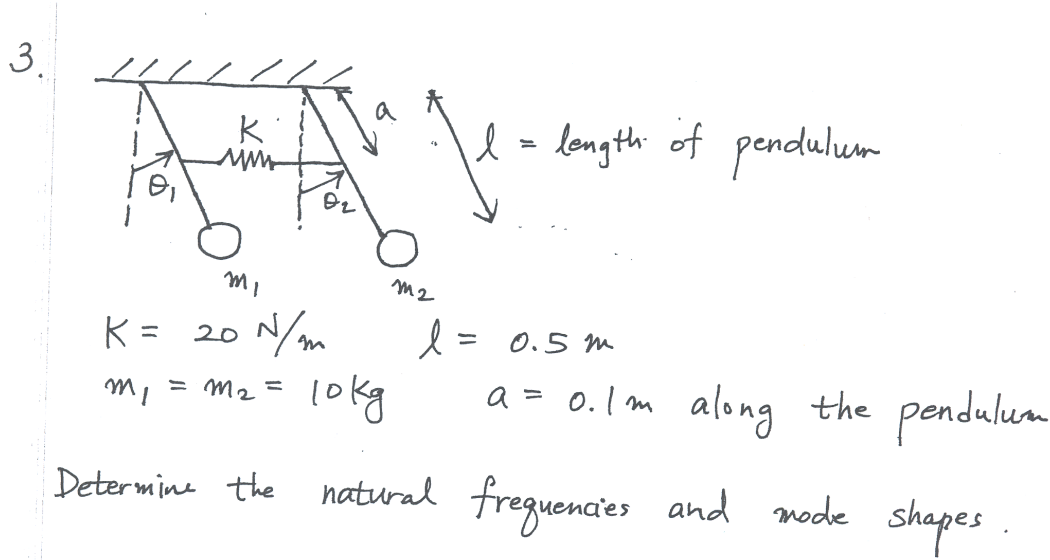 3.
a
K
l = length of pendulum
θ₁
θ₂
m₁
m₂
K = 20 N/m l = 0.5 m
m₁ = m₂ = 10kg a = 0.1m along the pendulum
Determine the natural frequencies and mode shapes.